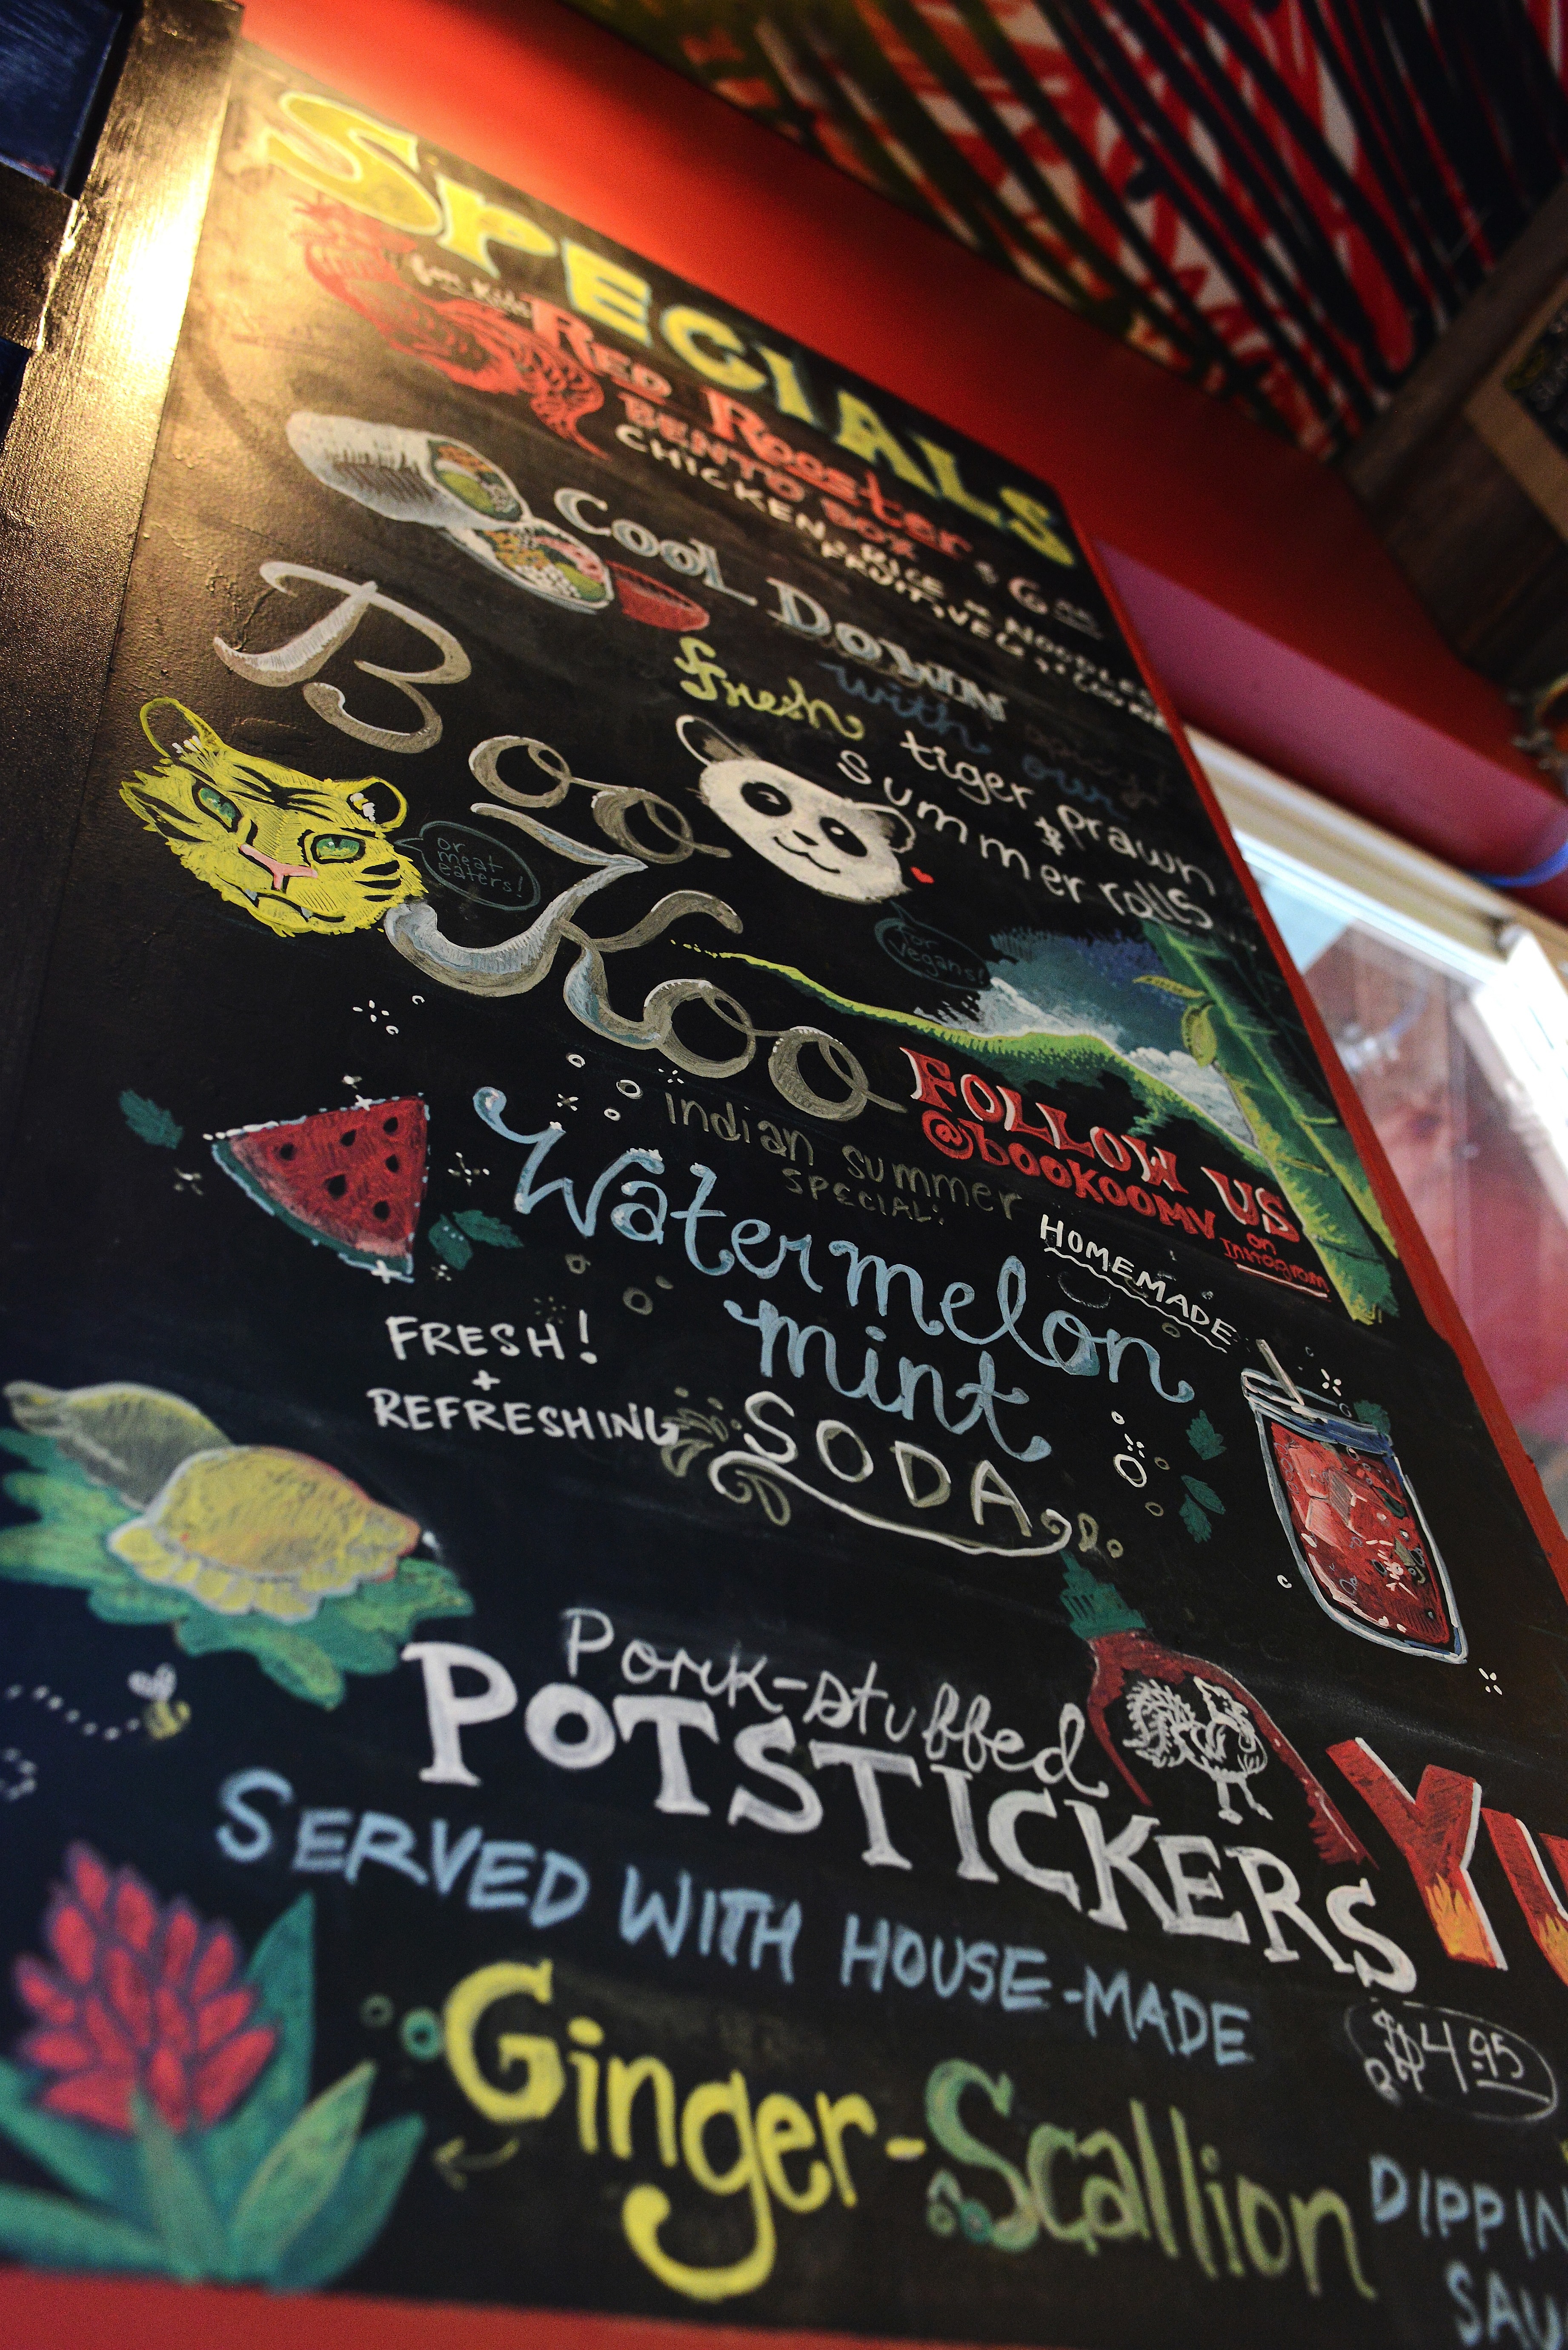 SPECIALS
for kids
RED ROOSTER
BENTO BOX
$6.00
CHICKEN, RICE or NOODLES
FRUIT, VEG,
COOL DOWN
with our
fresh
spicy
tiger prawn
summer rolls
Boo
Koo
or
meat
eaters!
for
vegans!
FOLLOW US
@bookoomv
on
Instagram
indian summer
SPECIAL:
HOMEMADE
Watermelon
mint
SODA
FRESH!
+
REFRESHING
Pork-stuffed
POTSTICKERS
YU
SERVED WITH HOUSE-MADE
$4.95
Ginger-Scallion
DIPPIN
SAU